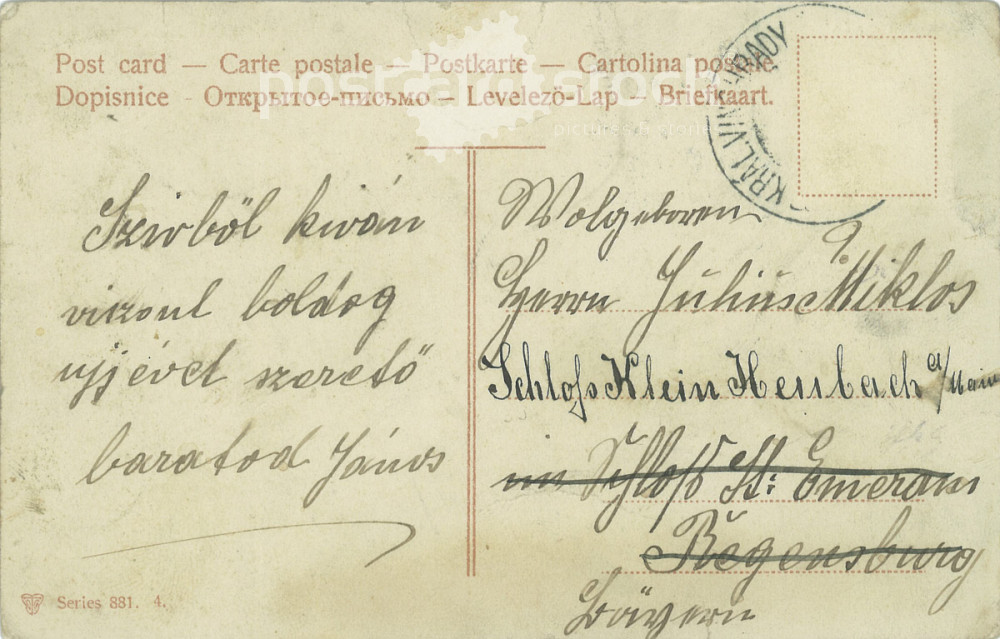 Post card — Carte postale — Postkarte — Cartolina postale
Dopisnice - Открытое-письмо – Levelező-Lap – Briefkaart.
post-art-stock
pictures & stories
KRÁL. VINOHRADY
Szivböl kiván
viszont boldog
ujjévet szerető
baratod János
Wolgeboren
Herrn Julius Miklos
Schloss Klein Heubach a/Main
im Schloß St: Emeram
Regensburg
Bayern
Series 881. 4.